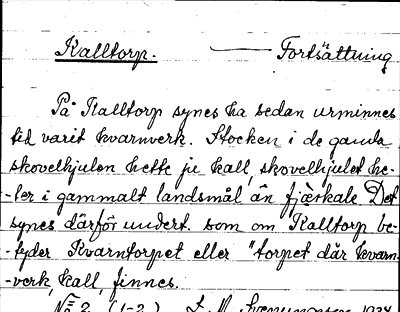 Kalltorp. — Fortsättning
På Kalltorp synes ha sedan urminnes
tid varit kvarnverk. Stocken i de gamla
skovelhjulen hette ju kall, skovelhjulet he-
-ter i gammalt landsmål än fjæskale Det
synes därför undert. som om Kalltorp be-
-tyder Kvarntorpet eller "torpet där kvarn-
-verk, kall, finnes.
№ 2 (1-2) L. M. 1934